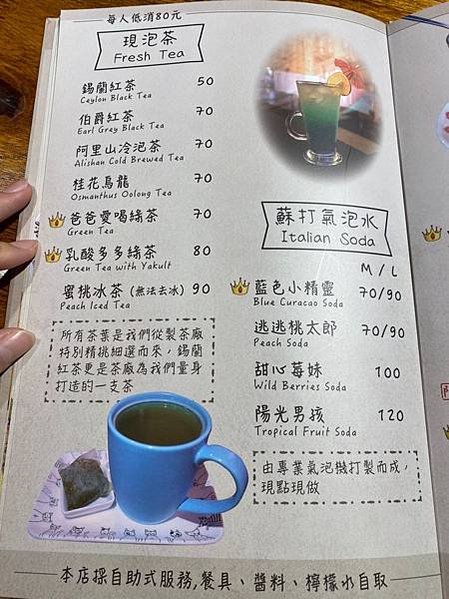 每人低消80元
現泡茶
Fresh Tea
錫蘭紅茶 50
Ceylon Black Tea
伯爵紅茶 70
Earl Grey Black Tea
阿里山冷泡茶 70
Alishan Cold Brewed Tea
桂花烏龍 70
Osmanthus Oolong Tea
爸爸愛喝綠茶 70
Green Tea
乳酸多多綠茶 80
Green Tea with Yakult
蜜桃冰茶 (無法去冰) 90
Peach Iced Tea
所有茶葉是我們從製茶廠
特別精挑細選而來，錫蘭
紅茶更是茶廠為我們量身
打造的一支茶
蘇打氣泡水
Italian Soda
M / L
藍色小精靈 70/90
Blue Curacao Soda
逃逃桃太郎 70/90
Peach Soda
甜心莓妹 100
Wild Berries Soda
陽光男孩 120
Tropical Fruit Soda
由專業氣泡機打製而成，
現點現做
本店採自助式服務,餐具、醬料、檸檬水自取